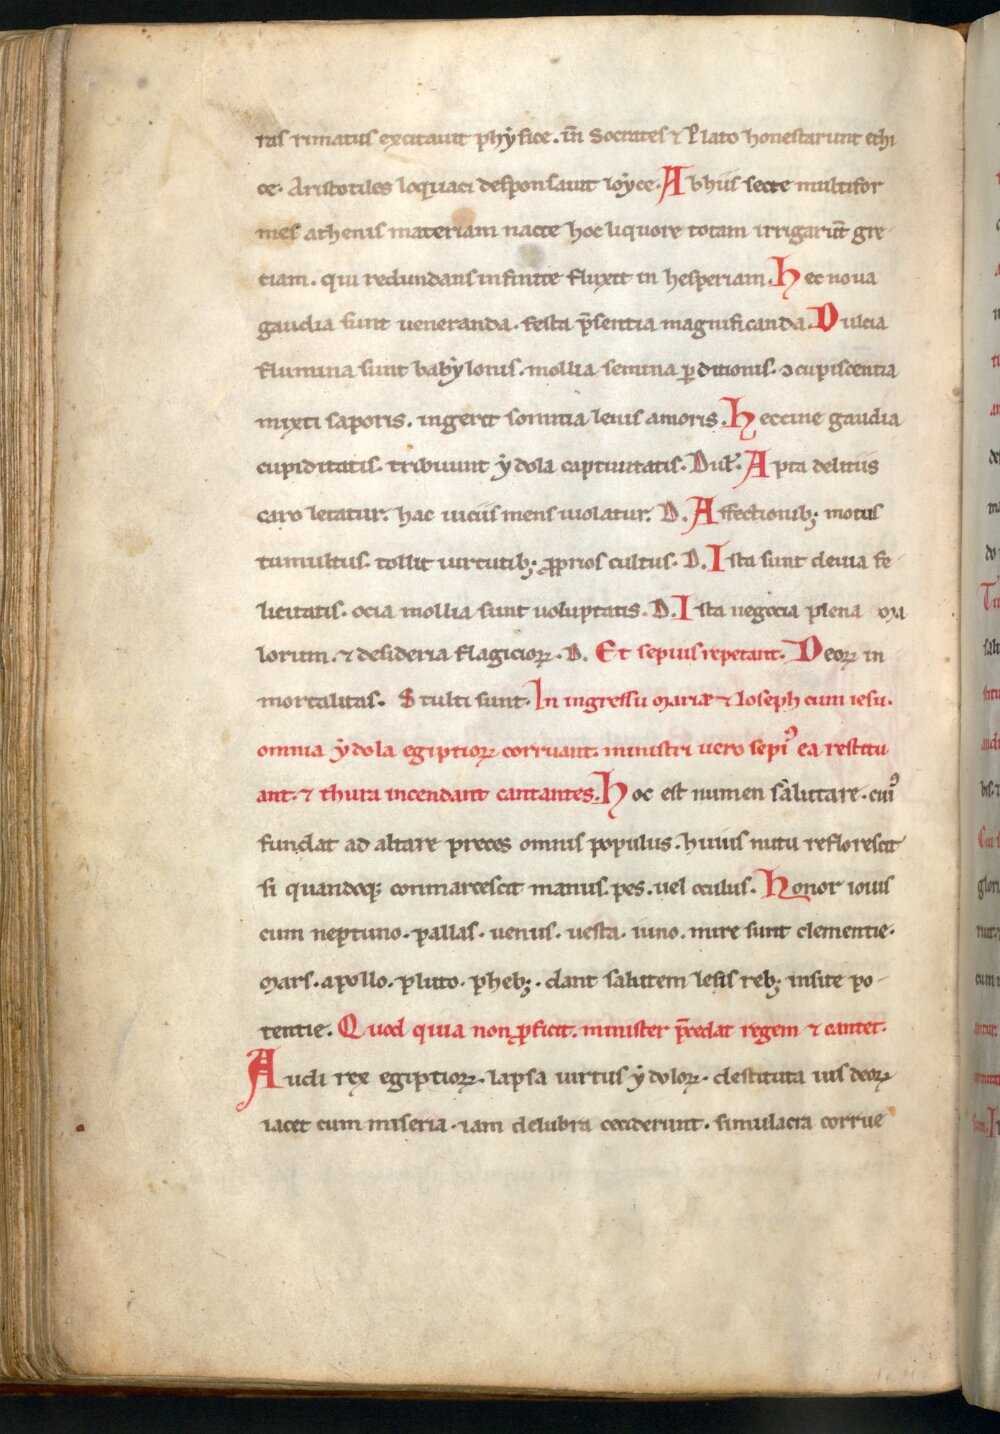 ras rimatus excitauit phẏsice. iñ Socrates ⁊ Plato honestarunt ethi
ce. Aristotiles loquaci desponsauit loẏce. Ab hiis secte multifor
mes athenis materiam nacte hoc liquore totam irrigarūt gre
ciam. qui redundans infinite fluxit in hesperiam. Hec noua
gaudia sunt ueneranda. festa p̄sentia magnificanda. Dulcia
flumina sunt babẏlonis. mollia semina ꝑditionis. ɔcupiscentia
mixti saporis. ingerit somnia leuis amoris. Heccine gaudia
cupiditatis. tribuunt ẏdola captiuitatis. Dul. Apta delitiis
caro letatur. hac uiciis mens uiolatur. D. Affectionibꝫ motus
tumultus. tollit uirtutibꝫ ꝓprios cultus. D. Ista sunt deuia fe
licitatis. ocia mollia sunt uoluptatis. D. Ista negocia plena ma
lorum. ⁊ desideria flagicioꝝ. D. Et sepius repetant. Deoꝝ in
mortalitas. Stulti sunt. In ingressu mariæ ⁊ Ioseph cum iesu.
omnia ẏdola egiptioꝝ corruant. ministri uero sepiꝰ ea restitu
ant. ⁊ thura incendant cantantes. Hoc est numen salutare. cuiꝰ
fundat ad altare preces omnis populus. huius nutu reflorescit
si quandoqꝫ conmarcescit manus. pes. uel oculus. Honor iouis
cum neptuno. pallas. uenus. uesta. iuno. mire sunt clementie.
mars. apollo. pluto. phebꝫ. dant salutem lesis rebꝫ insite po-
tentie. Quod quia non ꝓficit. minister p̄cedat regem ⁊ cantet.
Audi rex egiptioꝝ. lapsa uirtus ẏdoloꝝ. destituta uis deoꝝ
iacet cum miseria. iam delubra ceciderunt. simulacra corrue